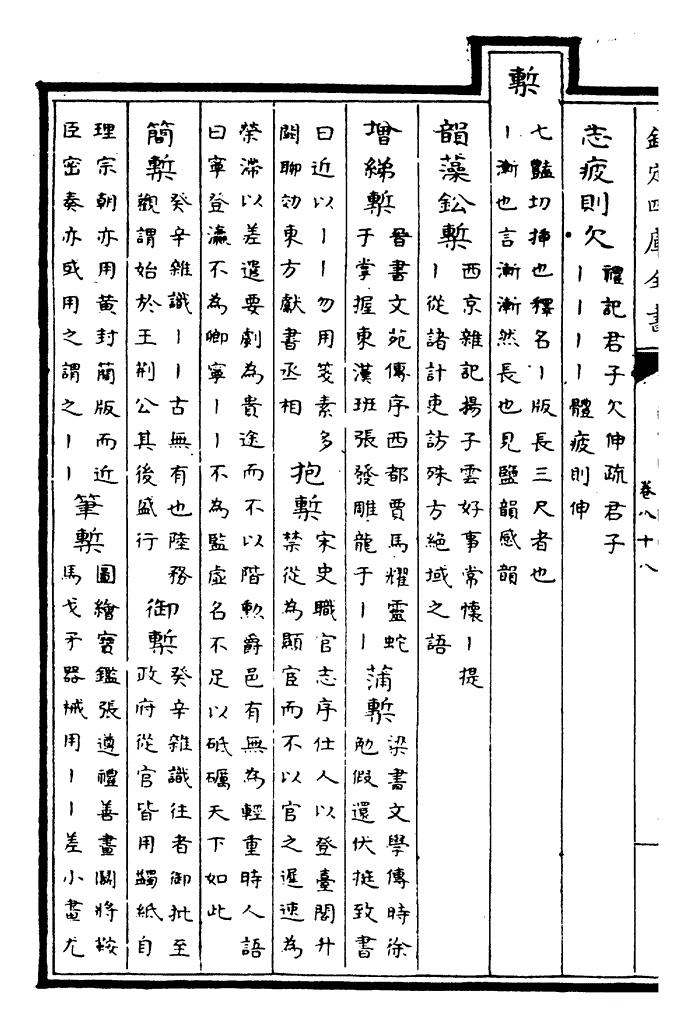 欽定四庫全書
卷八十八
志疲則欠
禮記君子欠伸疏君子
丨丨丨丨體疲則伸
槧
七豔切揷也釋名丨版長三尺者也
丨漸也言漸漸然長也見鹽韻感韻
韻藻鈆槧
西京雜記揚子雲好事常懷丨提
丨從諸計吏訪殊方絶域之語
增綈槧
晉書文苑傳序西都賈馬耀靈蛇
于掌握東漢班張發雕龍于丨丨
蒲槧
梁書文學傳時徐
勉假還伏挺致書
曰近以丨丨勿用箋素多
闕聊効東方獻書丞相
抱槧
宋史職官志序仕人以登臺閣升
禁從為顯宦而不以官之遲速為
榮滯以差遣要劇為貴途而不以階勲爵邑有無為輕重時人語
曰寧登瀛不為卿寧丨丨不為監虛名不足以砥礪天下如此
簡槧
癸辛雜識丨丨古無有也陸務
觀謂始於王荆公其後盛行
御槧
癸辛雜識往者御批至
政府從官皆用蠲紙自
理宗朝亦用黄封蕳版而近
臣密奏亦或用之謂之丨丨
筆槧
圖繪寶鑑張遵禮善畫鬭將鞍
馬戈矛器械用丨丨差小畫尤